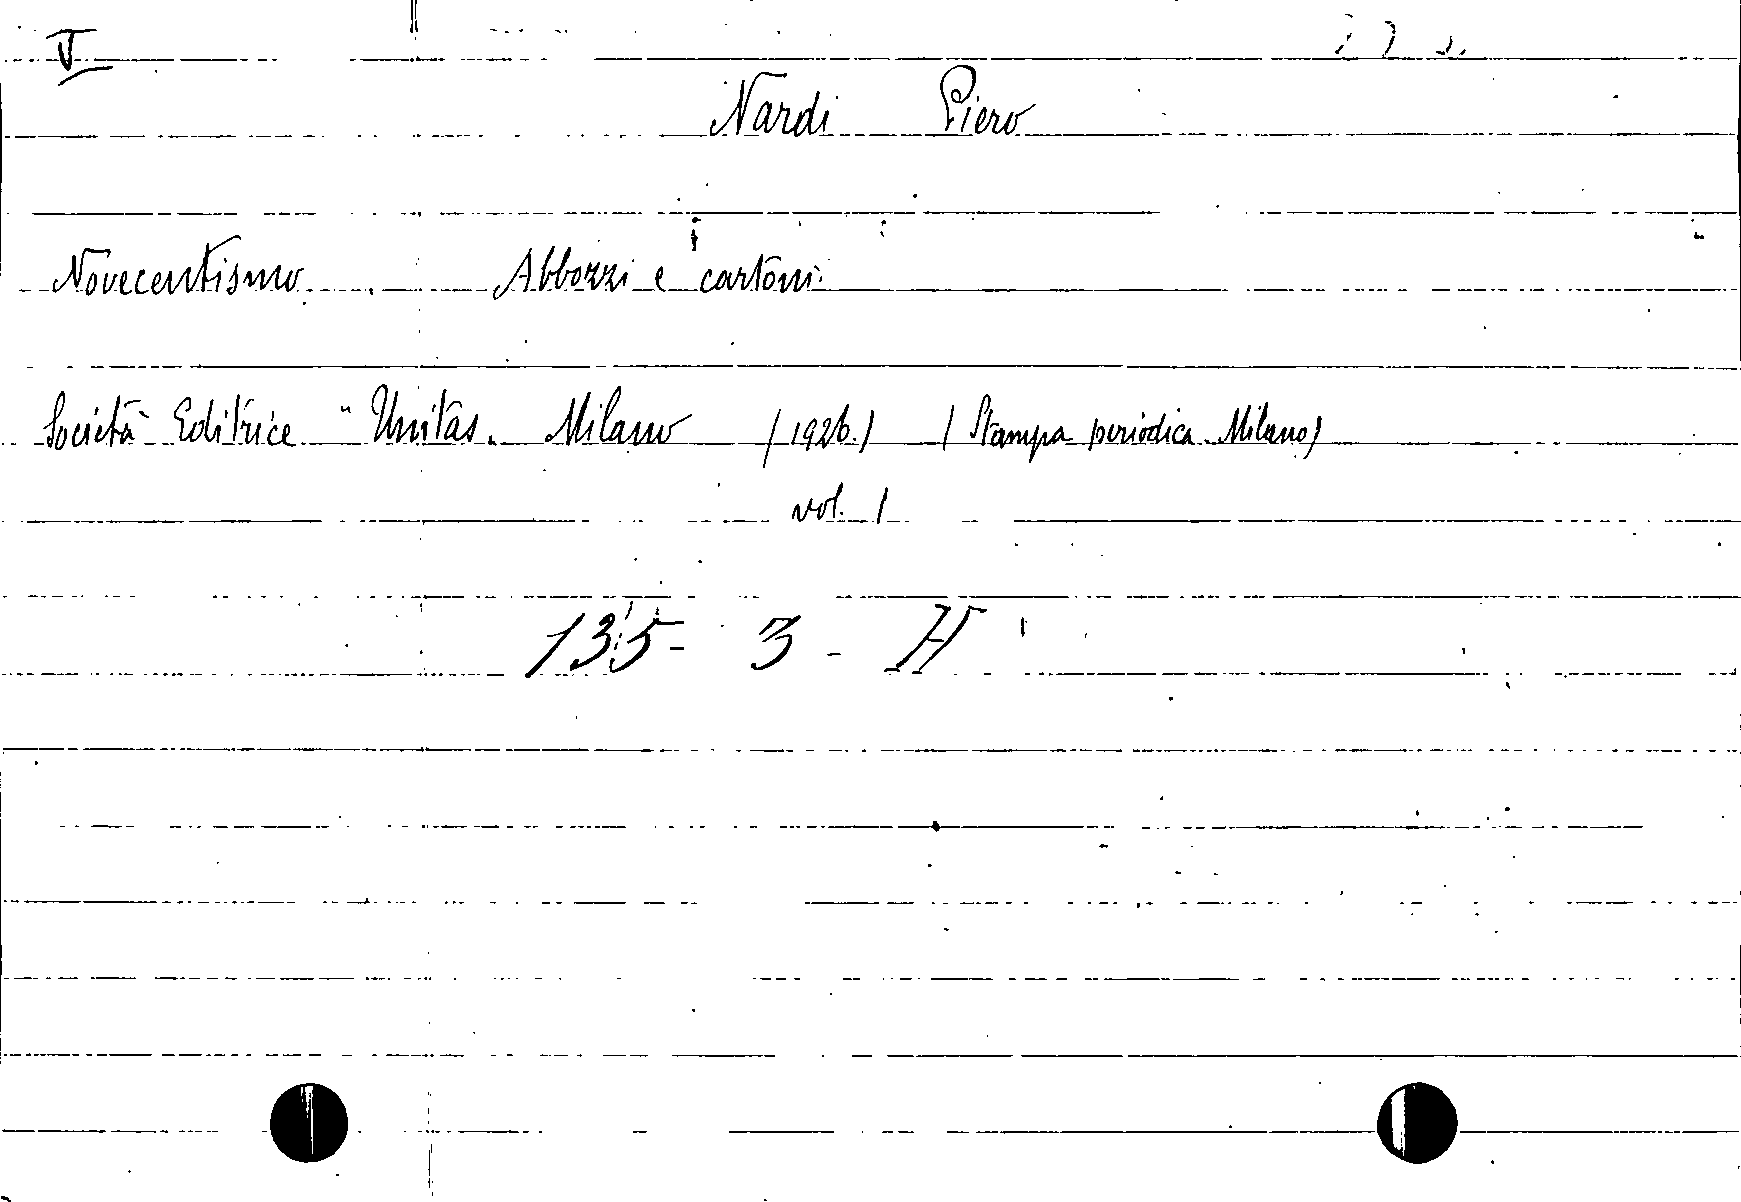 V
Nardi Piero
Novecentismo. Abbozzi e cartoni.
Società Editrice "Unitas. Milano (1926.) (Stampa periodica. Milano)
vol. 1
135 - 3 - H